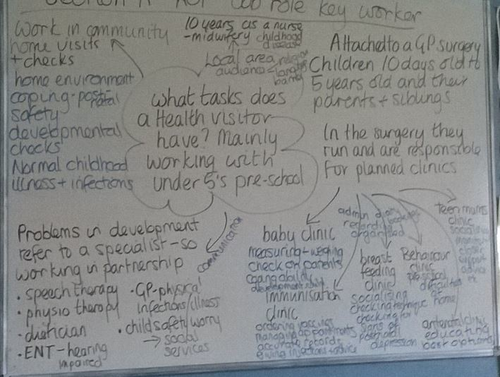 role key worker
Work in community
home visits
+ checks
home environment
coping - postnatal
safety
developmental
checks
Normal childhood
illness + infections
10 years as a nurse
- midwifery childhood
disease
Local area
audience
what tasks does
a Health visitor
have? Mainly
working with
under 5's pre-school
Attached to a GP surgery
Children 10 days old to
5 years old and their
parents + siblings
In the surgery they
run and are responsible
For planned clinics
Problems in development
refer to a specialist - so
working in partnership
• speech therapy
• physio therapy
• dietician
• ENT - hearing
impaired
• GP - physical
infections/illness
• child safety worry
→ social
services
communication
baby clinic
measuring - weighing
check on parents
coping ability
immunisation
clinic
ordering vaccines
managing appointments
accurate records
giving injections
admin
organised
breast
feeding
clinic
socialising
checking
checking for
signs of
postnatal
depression
Behaviour
clinic
pre school
home
Teen mams
clinic
social
antenatal
educating